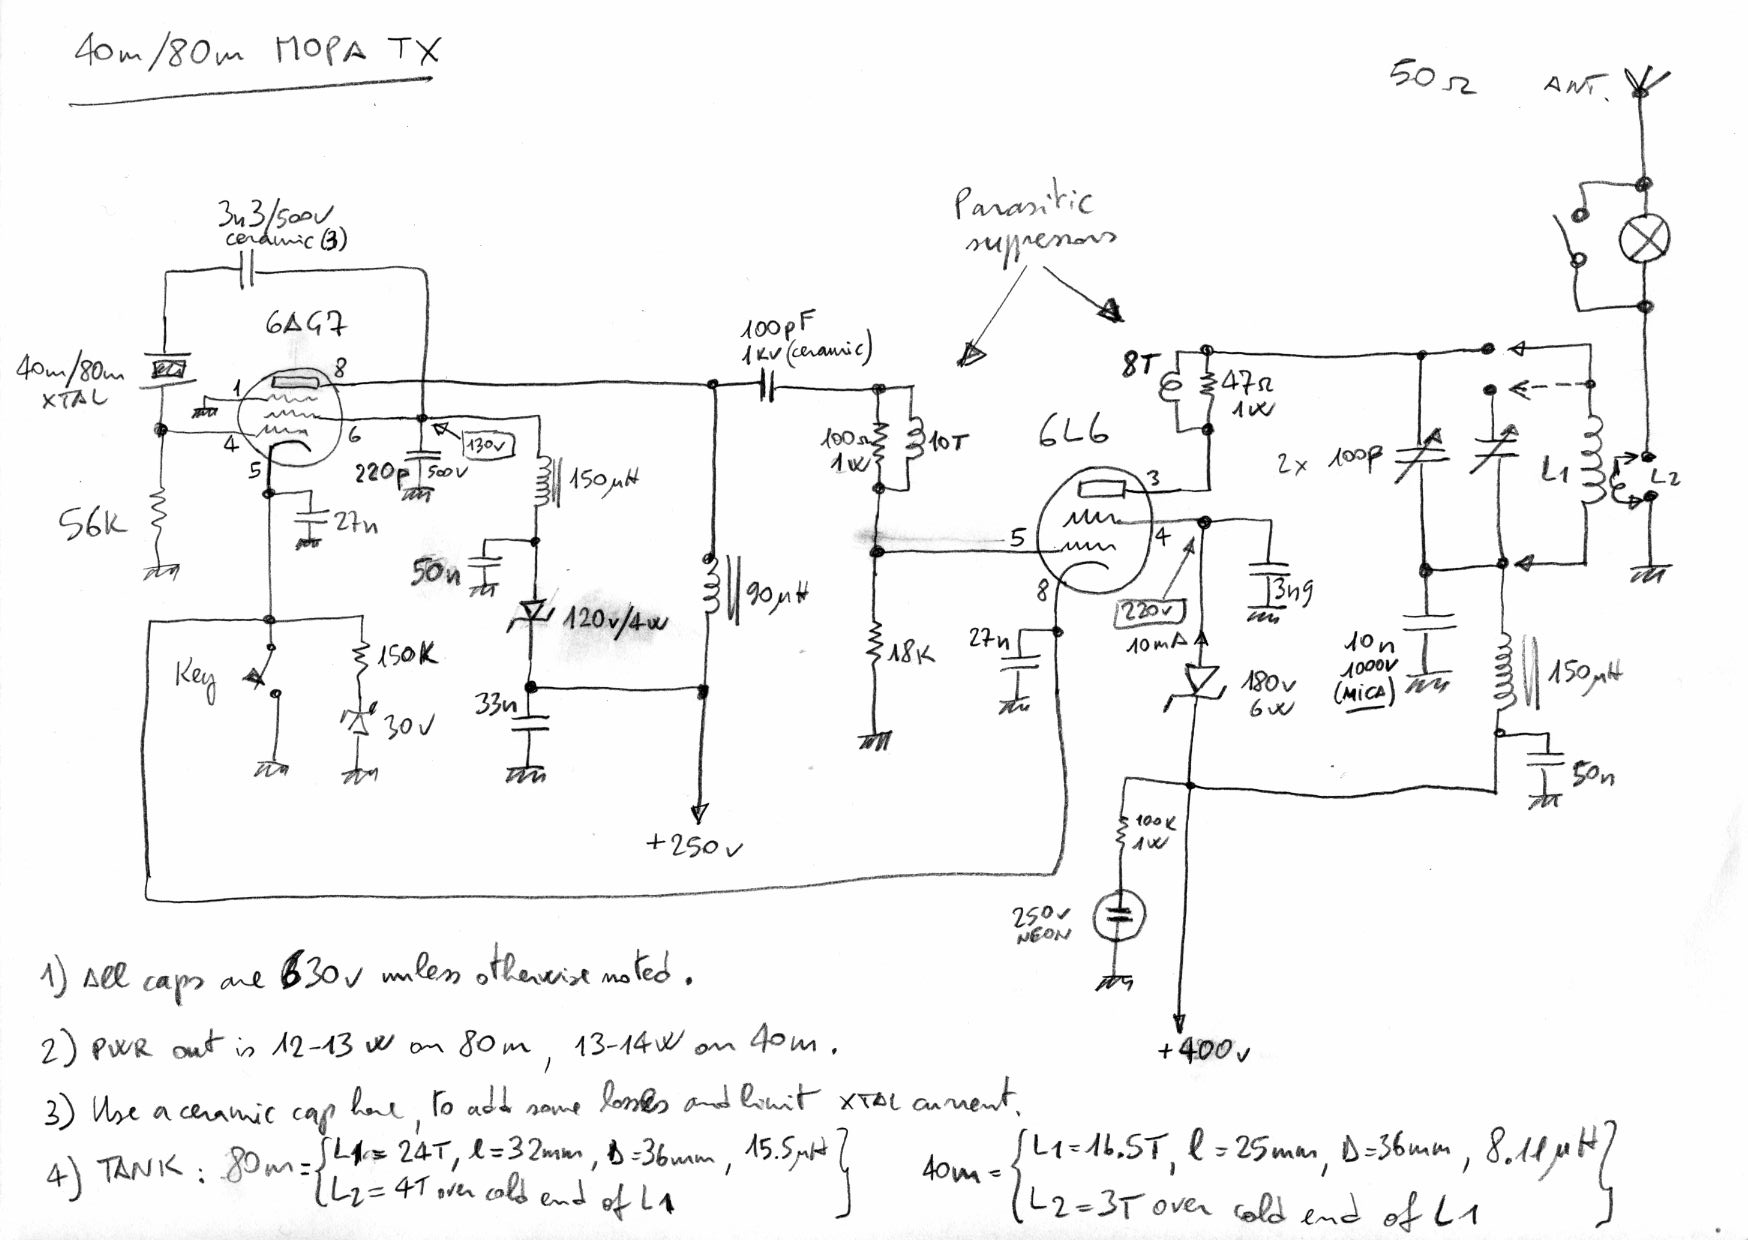 40m/80m MOPA TX
50Ω ANT.
Parasitic
suppressors
3n3/500V
ceramic (3)
6AG7
40m/80m
XTAL
1
8
4
6
5
130V
220p
500V
150µH
56K
27n
50n
120V/4W
90µH
Key
150K
30V
33n
+250V
100pF
1KV (ceramic)
100Ω
1W
10T
18K
8T
47Ω
1W
6L6
3
5
4
8
27n
220V
10mA
3n9
180V
6W
2x 100p
L1
L2
10n
1000V
(MICA)
150µH
50n
100K
1W
250V
NEON
+400V
1) All caps are 630V unless otherwise noted.
2) PWR out is 12-13W on 80m, 13-14W on 40m.
3) Use a ceramic cap here, to add some losses and limit XTAL current.
4) TANK: 80m= {L1= 24T, l=32mm, D=36mm, 15.5µH}
{L2= 4T over cold end of L1}
40m= {L1=16.5T, l=25mm, D=36mm, 8.11µH}
{L2=3T over cold end of L1}